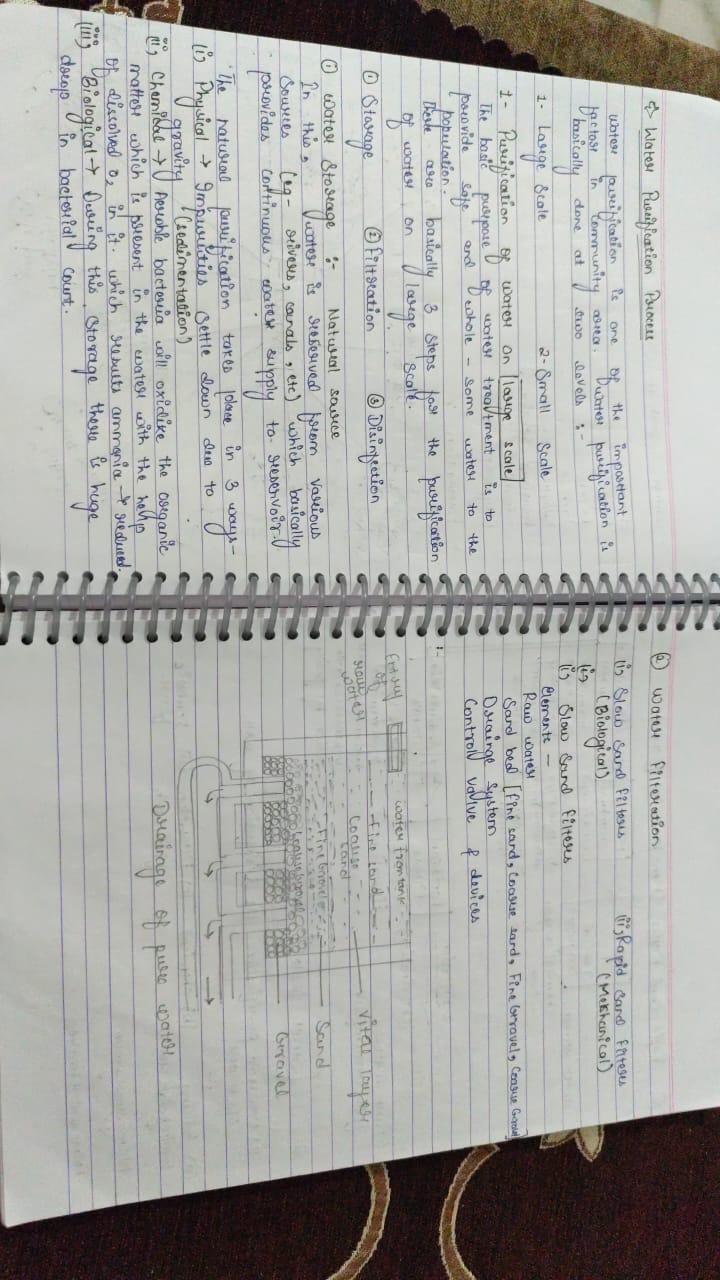 ⇒ Water Purification Process
Water purification is one of the important
factor in community area. Water purification is
basically done at two levels :-
1- Large Scale 2- Small Scale
1- Purification of water on large scale
The basic purpose of water treatment is to
provide safe and whole - some water to the
population.
There are basically 3 steps for the purification
of water on large scale.
① Storage ② Filtration ③ Disinfection
① Water Storage :- Natural source
In this, water is reserved from various
Sources (eg- rivers, canals, etc) which basically
provides continuous water supply to reservoir.
The natural purification takes place in 3 ways-
(i) Physical → Impurities settle down due to
gravity (sedimentation)
(ii) Chemical → Aerobic bacteria will oxidike the organic
matter which is present in the water with the help
of dissolved O2 in it. which results ammonia → reduced.
(iii) Biological → During this storage there is huge
drop in bacterial count.
② Water Filteration
(i) Slow Sand Filters (ii) Rapid Sand Filters
(Biological) (Mekhanical)
(i)
(i) Slow Sand Filters
Elements -
Raw water
Sand bed [Fine sand, Coarse sand, Fine Gravel, Coarse Gravel]
Drainge System
Control valve & devices
:-
Entry of raw water
water from tank
Fine sand
Coarse sand
Fine Gravel
Coarse Gravel
Vital layer
Sand
Gravel
Drainage of pure water